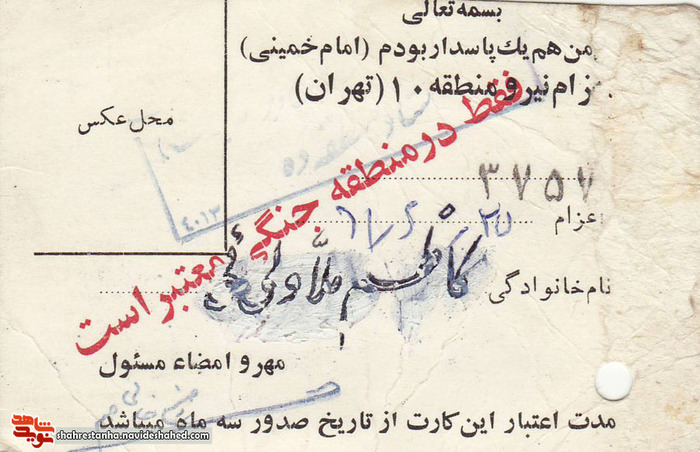 بسمه تعالی
من هم یك پاسدار بودم (امام خمینی)
زام نیرو منطقه ۱۰ (تهران)
محل عکس
فقط در منطقه جنگی معتبر است
۳۷۵۷
عزام ۲۵
۴۰۱۳
نام خانوادگی کاظم
مهر و امضاء مسئول
مدت اعتبار این کارت از تاریخ صدور سه ماه میباشد
شاهد
نوید
shahrestanha.navideshahed.com